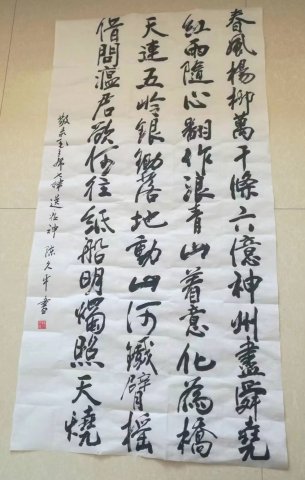 春風楊柳萬千條六億神州盡舜堯
紅雨隨心翻作浪青山着意化為橋
天連五岭銀鋤落地動山河鐵臂搖
借問瘟君欲何往紙船明燭照天燒
敬录毛主席七律送瘟神 書